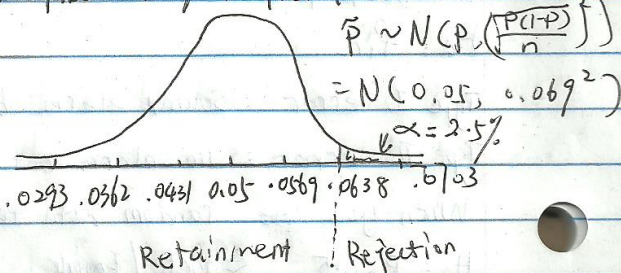 p̂ ~ N(p, (√(p(1-p)/n))²)
= N(0.05, 0.069²)
α = 2.5%
.0293 .0362 .0431 0.05 .0569 .0638 .0703
Retainment Rejection